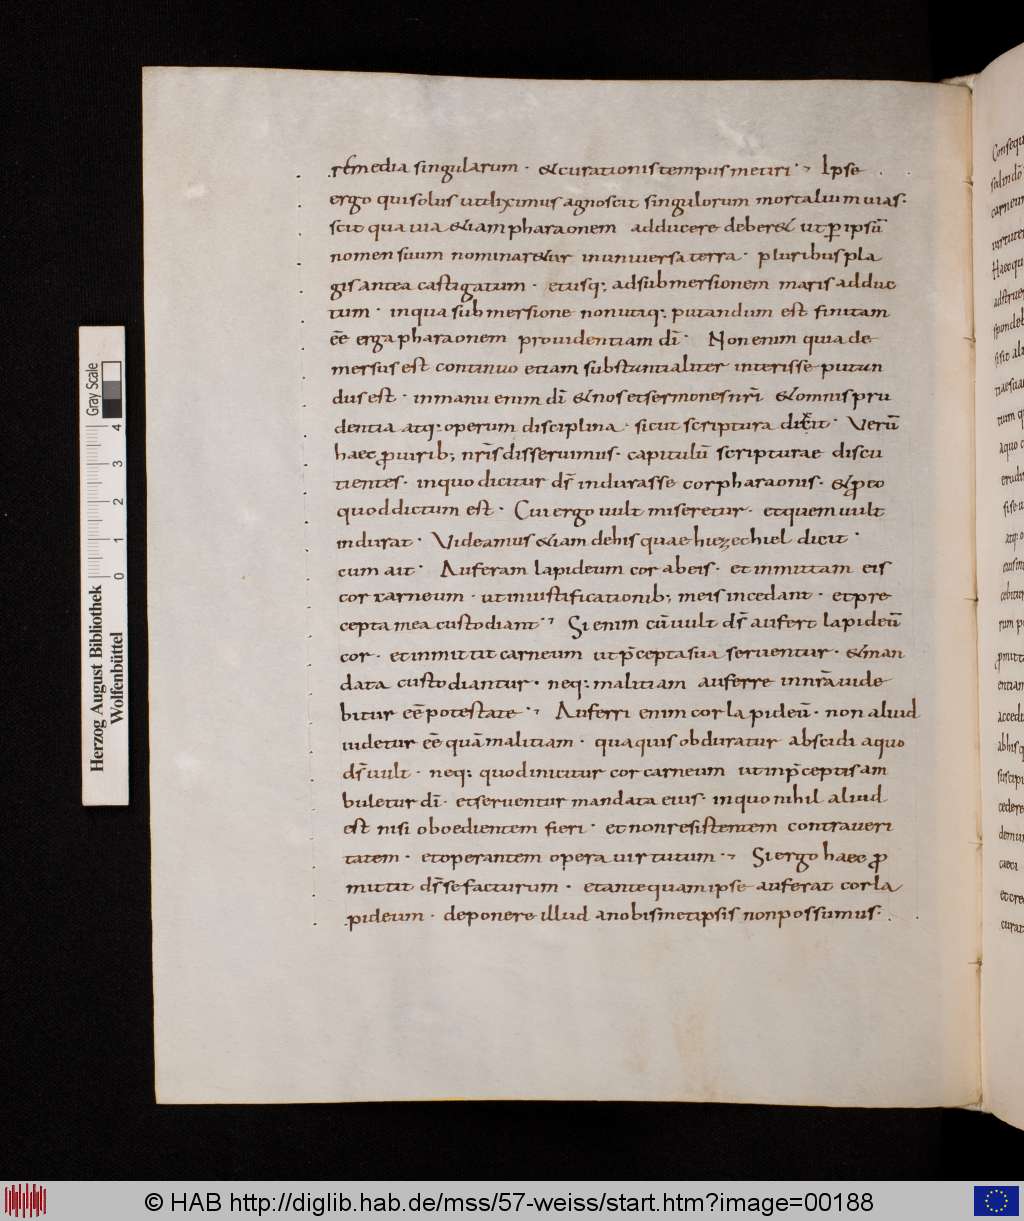 remedia singularum · & curationis tempus metiri · Ipse
ergo qui solus ut diximus agnoscit singulorum mortalium uias ·
scit qua uia &iam pharaonem adducere deber& ut p̲ ipsū
nomen suum nominar&ur in uniuersa terra · pluribus pla
gis antea castigatum · et usq; ad submersionem maris adduc
tum · in qua submersione non utiq; putandum est finitam
eē̄ erga pharaonem prouidentiam dī · Non enim quia de
mersus est continuo etiam substantialiter interisse putan
dus est · in manu enim dī & nos et sermones nr̄i & omnis pru
dentia atq; operum disciplina · sicut scriptura dicit · Verū
haec ꝓ uirib; nr̄is disseruimus · capitulū scripturae discu
tientes · in quo dicitur dš indurasse cor pharaonis · & ꝓ eo
quod dictum est · Cui ergo uult miseretur · et quem uult
indurat · Videamus &iam de his quae hiezechiel dicit ·
cum ait · Auferam lapideum cor ab eis · et inmittam eis
cor carneum · ut in iustificationib; meis incedant · et pre
cepta mea custodiant · Si enim cū uult dš aufert lapideū
cor · et inmittit carneum ut p̄cepta sua seruentur · & man
data custodiantur · neq; malitiam auferre in nr̄a uide
bitur eē̄ potestate · Auferri enim cor lapideū · non aliud
uidetur eē̄ quā malitiam · qua quis obduratur abscidi a quo
dš uult · neq; quod inicitur cor carneum ut in p̄ceptis am
buletur dī · et seruentur mandata eius · in quo nihil aliud
est nisi oboedientem fieri · et non resistentem contra ueri
tatem · et operantem opera uirtutum · Si ergo haec ꝓ
mittit dš se facturum · et ante quam ipse auferat cor la
pideum · deponere illud a nobismetipsis non possumus ·
Gray Scale
0 1 2 3 4
Herzog August Bibliothek
Wolfenbüttel
© HAB http://diglib.hab.de/mss/57-weiss/start.htm?image=00188